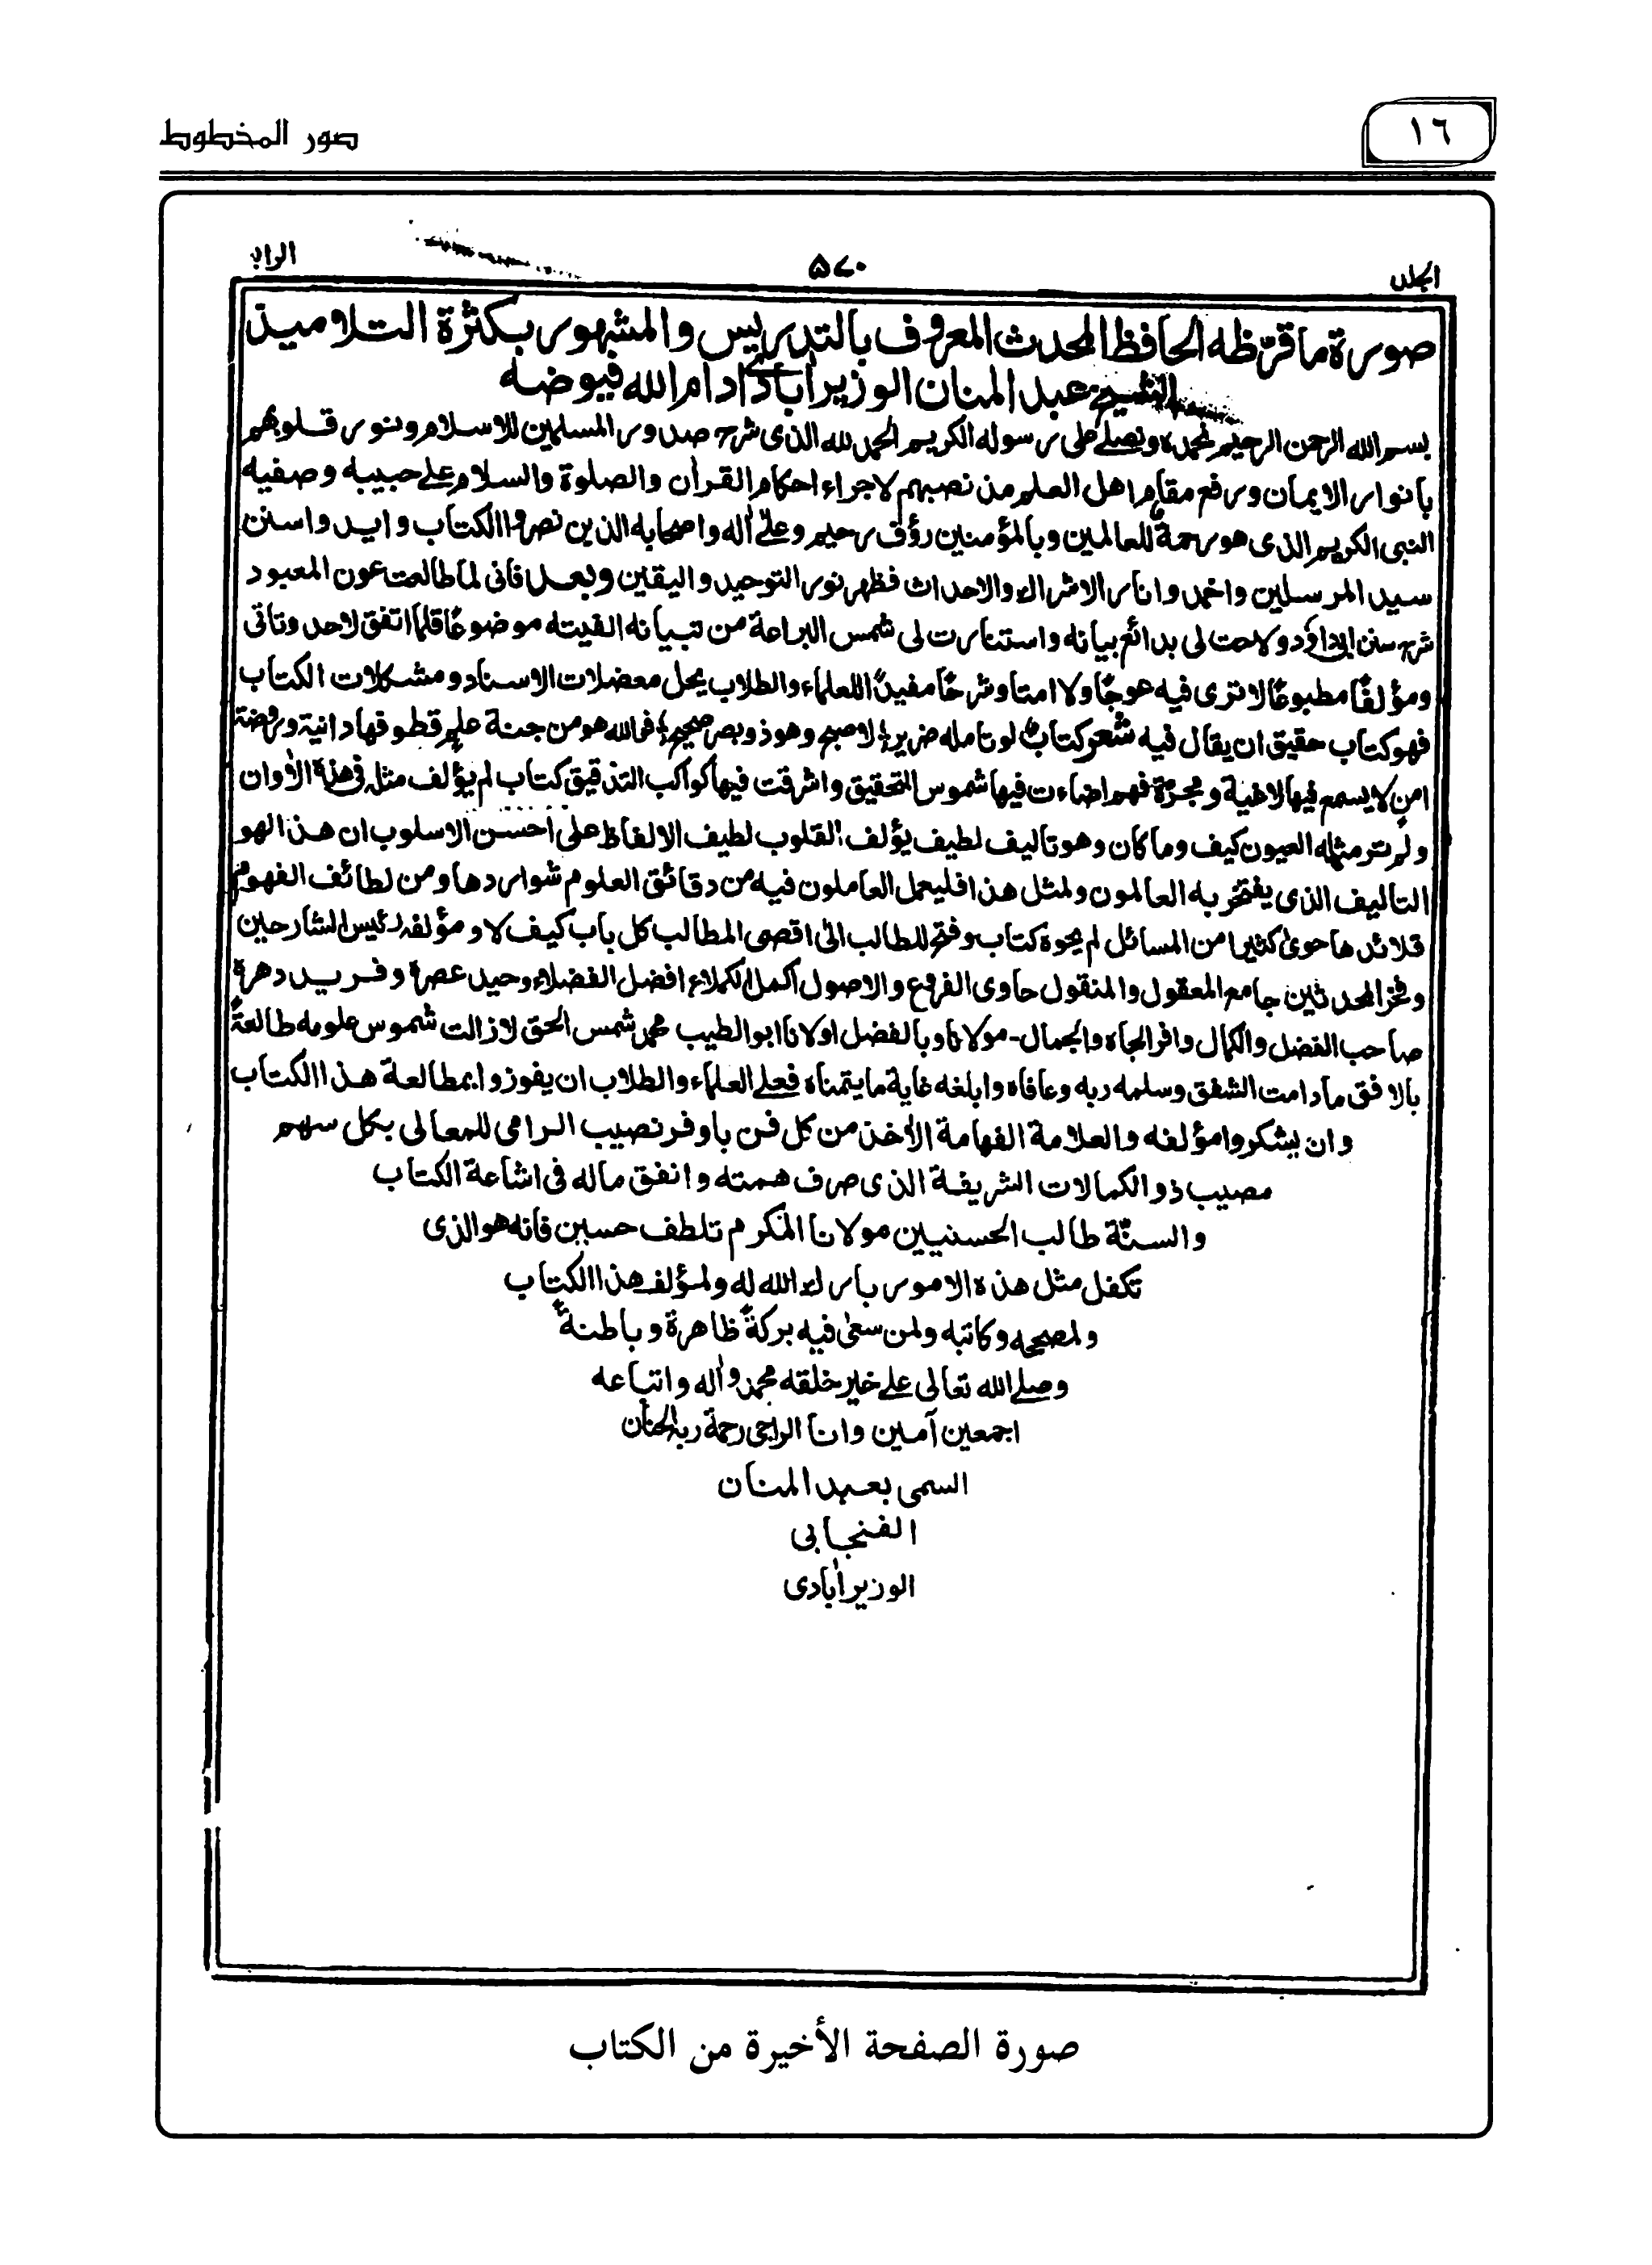 ١٦
صور المخطوط
المجلد
۵۷۰
الراب
صورة ما قرظه الحافظ المحدث المعروف بالتدريس والمشهور بكثرة التلاميذ
الشيخ عبد المنان الوزيرآبادي ادام الله فيوضه
بسم الله الرحمن الرحيم نحمده ونصلے علی رسوله الكريم الحمد لله الذی شرح صدور المسلمين للاسلام ونور قلوبهم
بانوار الايمان ورفع مقام اهل العلم من نصبهم لاجراء احكام القرآن والصلوة والسلام علے حبيبه وصفيه
النبی الكريم الذی هو رحمة للعالمين وبالمؤمنين رؤف رحيم وعلےٰ اٰله واصحابه الذين نصروا الكتاب وايدوا سنن
سيد المرسلين واخمدوا نار الاشراك والاحداث فظهر نور التوحيد واليقين وبعد فانی لما طالعت عون المعبود
شرح سنن ابی داؤد ولاحت لی بدائع بيانه واستنارت لی شمس البراعة من تبيانه الفيته موضوعًا قلما اتفق لاحد وتاتی
ومؤلفًا مطبوعًا لا تری فيه عوجًا ولا امتا وشرحًا مفيدًا للعلماء والطلاب يحل معضلات الاسناد ومشكلات الكتاب
فهو كتاب حقيق ان يقال فيه شعر كتاب لو تامله ضرير؛ لاصبح وهو ذو بصر صحيح؛ فوالله هو من جنة علم قطوفها دانية وروضة
امن لا يسمع فيها لاغية و مجرة فهم اضاءت فيها شموس التحقيق واشرقت فيها كواكب التدقيق كتاب لم يؤلف مثله فی هذه الاٰوان
ولم تر مثله العيون كيف وما كان وهو تاليف لطيف يؤلف القلوب لطيف الالفاظ علی احسن الاسلوب ان هذا لهو
التاليف الذی يفتخر به العالمون ولمثل هذا فليعمل العاملون فيه من دقائق العلوم شواردها ومن لطائف الفهوم
قلائدها حویٰ كثيرا من المسائل لم يحوه كتاب وفتح للطالب الیٰ اقصی المطالب كل باب كيف لا ومؤلفه رئيس الشارحين
وفخر المحدثين جامع المعقول والمنقول حاوی الفروع والاصول اكمل الكملاء افضل الفضلاء وحيد عصره وفريد دهره
صاحب الفضل والكمال وافر الجاه والجمال- مولانا وبالفضل اولانا ابو الطيب محمد شمس الحق لا زالت شموس علومه طالعة
بالافق ما دامت الشفق وسلمه ربه وعافاه وابلغه غاية ما يتمناه فعلے العلماء والطلاب ان يفوزوا بمطالعة هذا الكتاب
وان يشكروا مؤلفه والعلامة الفهامة الاٰخذ من كل فن باوفر نصيب الرامی للمعالی بكل سهم
مصيب ذو الكمالات الشريفة الذی صرف همته وانفق ماله فی اشاعة الكتاب
والسنّة طالب الحسنيين مولانا المكرم تلطف حسين فانه هو الذی
تكفل مثل هذه الامور بارك الله له ولمؤلف هذا الكتاب
ولمصححه وكاتبه ولمن سعیٰ فيه بركةً ظاهرة وباطنةً
وصلے الله تعالی علے خير خلقه محمد واٰله واتباعه
اجمعين آمين وانا الراجی رحمة ربه الحنان
السمی بعبد المنان
الفنجابی
الوزيراٰبادی
صورة الصفحة الأخيرة من الكتاب